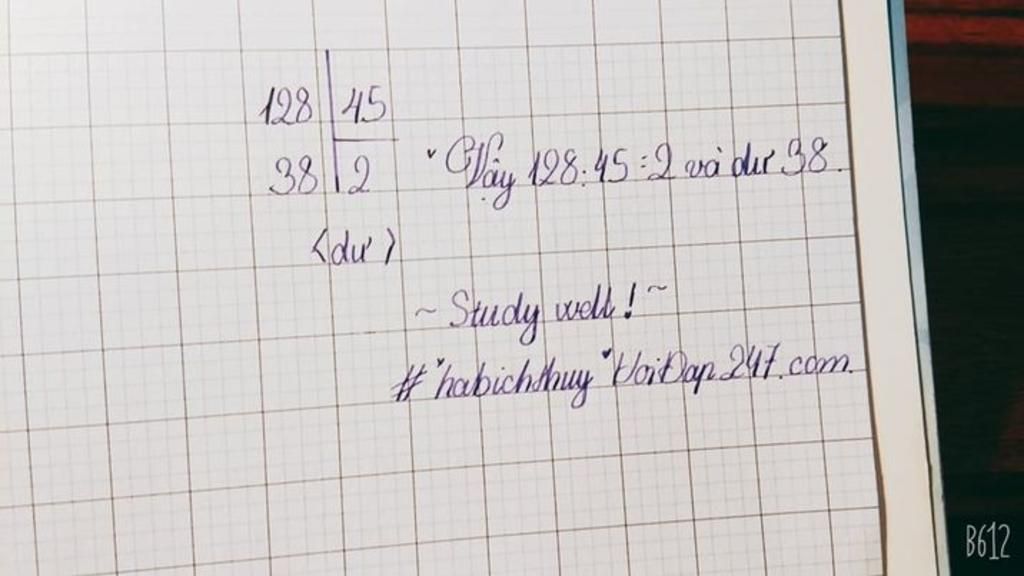 128 45
38 2
Vậy 128 : 45 = 2 và dư 38.
<dư>
~ Study well! ~
# habichthuy HoiDap 247.com.
B612